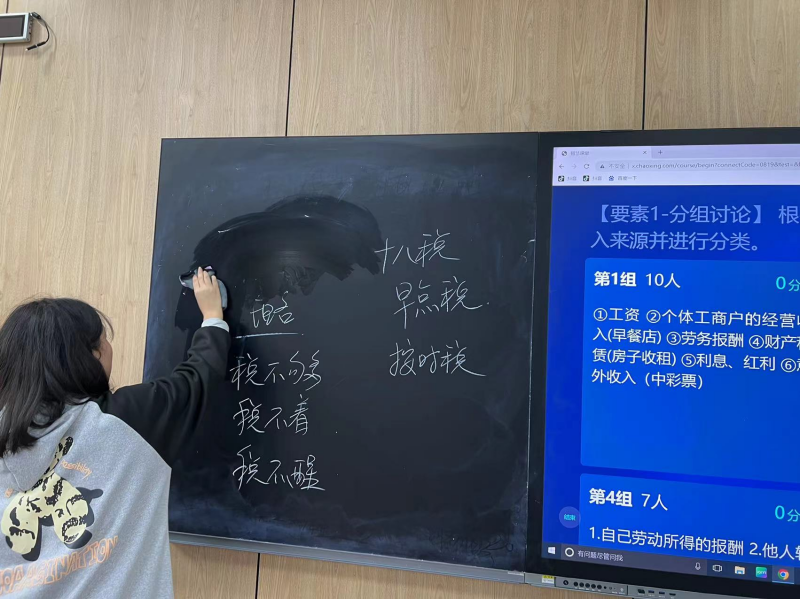 十八税
早点税
按时税
税不够
税不着
税不醒
【要素1-分组讨论】 根
入来源并进行分类。
第1组 10人
0分
①工资 ②个体工商户的经营收
入(早餐店) ③劳务报酬 ④财产租
赁(房子收租) ⑤利息、红利 ⑥
外收入（中彩票）
第4组 7人
0分
1.自己劳动所得的报酬 2.他人
结束
有问题尽管问我
百度一下